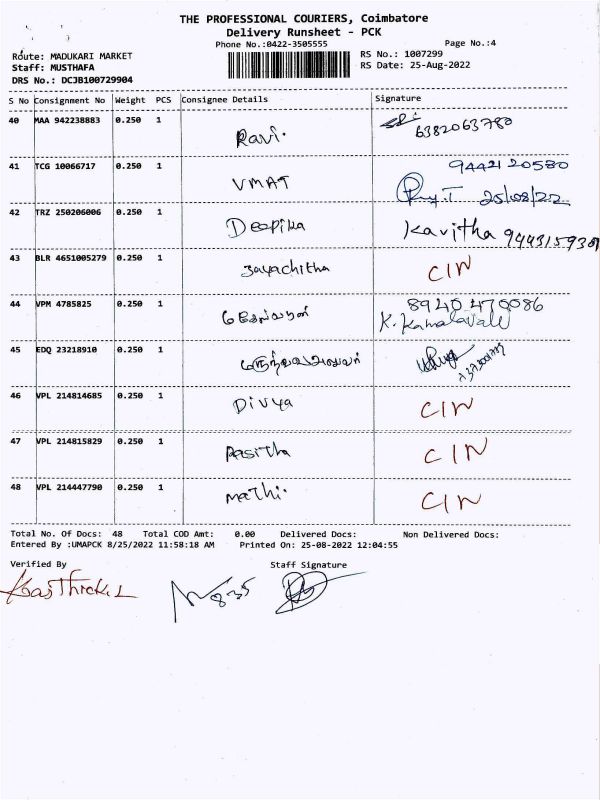 THE PROFESSIONAL COURIERS, Coimbatore
Delivery Runsheet - PCK
Phone No.:0422-3505555
Page No.:4
Route: MADUKARI MARKET
RS No.: 1007299
Staff: MUSTHAFA
RS Date: 25-Aug-2022
DRS No.: DCJB100729904
S No Consignment No Weight PCS Consignee Details Signature
40 MAA 942238883 0.250 1 Ravi. 6382063780
41 TCG 10066717 0.250 1 VMAT 9442120580
25/08/22
42 TRZ 250206006 0.250 1 Deepika Kavitha 9443159301
43 BLR 4651005279 0.250 1 Jayachitha CIN
44 VPM 4785825 0.250 1 8940470086
K. Kamalavalli
45 EDQ 23218910 0.250 1
46 VPL 214814685 0.250 1 Divya CIN
47 VPL 214815829 0.250 1 Aasitha CIN
48 VPL 214447790 0.250 1 Mathi. CIN
Total No. Of Docs: 48 Total COD Amt: 0.00 Delivered Docs: Non Delivered Docs:
Entered By :UMAPCK 8/25/2022 11:58:18 AM Printed On: 25-08-2022 12:04:55
Verified By Staff Signature
835